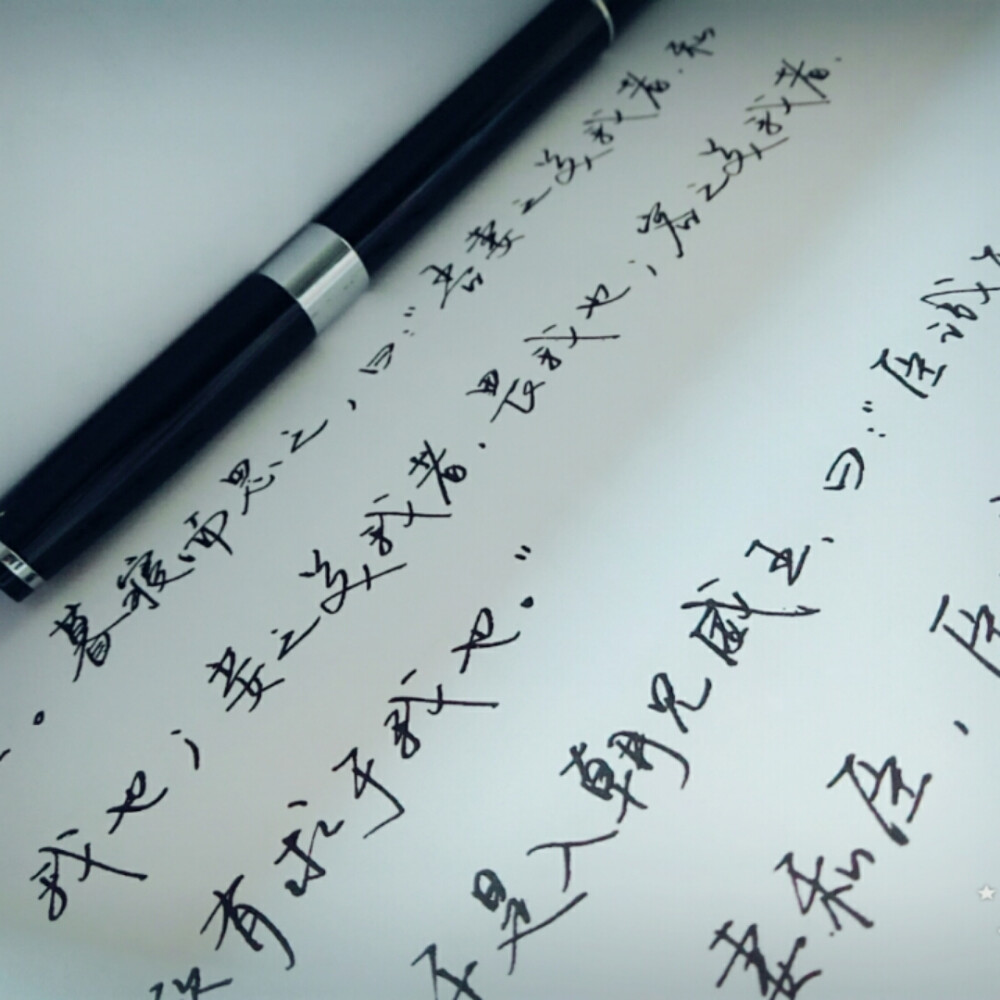 。暮寝而思之,曰:“吾妻之美我者,私
我也;妾之美我者,畏我也;客之美我者,
欲有求于我也。”
于是入朝见威王,曰:“臣诚
妻私臣,臣